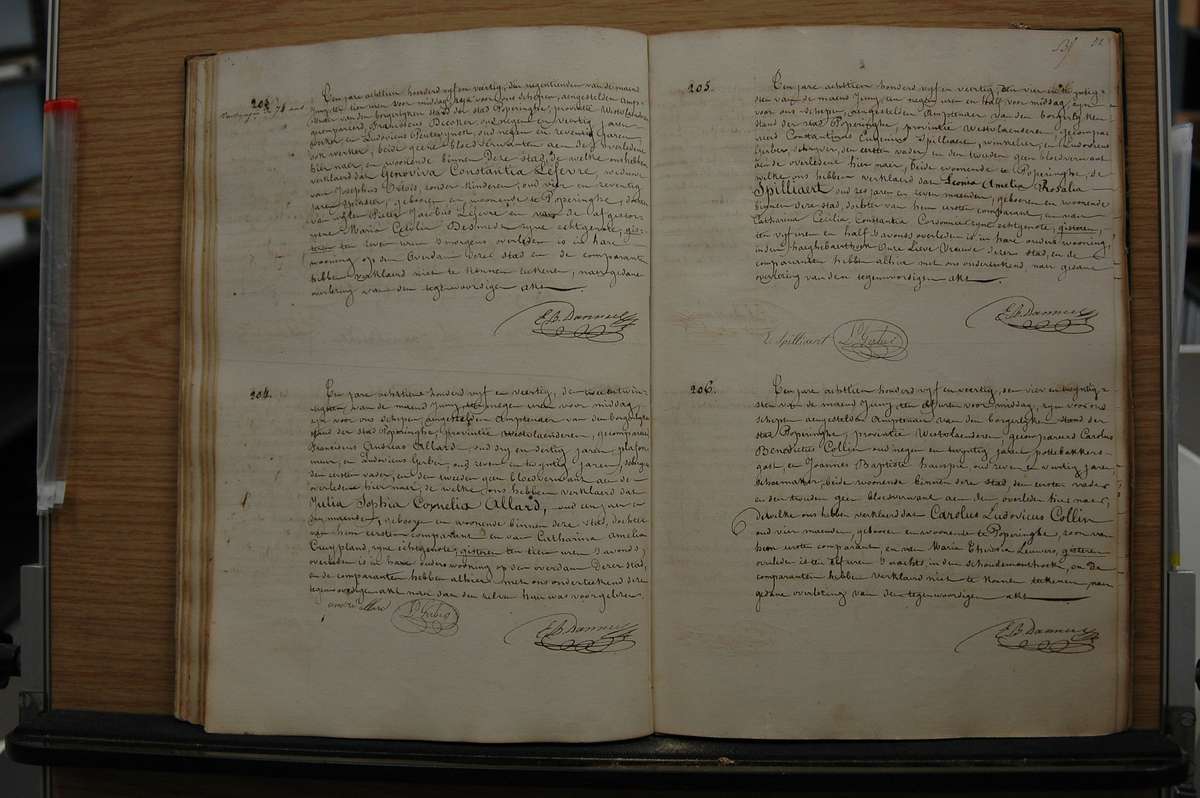 203
Een jare achttien honderd vyf en veertig, den negentienden van de maend
Juny, ten tien uren voor middag, zyn voor ons schepen, aengestelden Amp-
tenaer van den borgerlyken stand der stad Poperinghe, provintie Westvlaenderen
gecompareerd, Franciscus Decoker oud negen en veertig jaren
en Ludovicus oud negen en zeventig jaren
werker, beide geene bloedverwanten aen de overledene
hier naer, en woonende binnen deze stad, de welke ons hebben
verklaerd dat Genoviva Constantia Lefevre, weduwe
van Josephus Debois, zonder kinderen, oud vier en zeventig
jaren, geboren en woonende te Poperinghe, dochter
van Pieter Jacobus Lefevre en van de
Maria Cecilia Desmedt zyne echtgenote, gis-
teren ten zeven uren 's morgens overleden is in hare
wooning op den Overdam dezer stad en de comparanten
hebben verklaerd niet te konnen teekenen, naer gedane
overlezing van den tegenwoordigen akt
E B Danneel
204.
Een jare achttien honderd vyf en veertig, den twee en twin-
tigsten van de maend Juny, ten negen uren voor middag,
zyn voor ons schepen aengestelden Amptenaer van den borgerlyken
stand der stad Poperinghe, provintie Westvlaenderen, gecompareerd
Franciscus Andreas Allard, oud dry en dertig jaren, plafon-
neur, en Ludovicus Gerber, oud zeven en twyntig jaren, schryver
den eersten vader, en den tweeden geen bloedverwant aen de
overledene hier naer, de welke ons hebben verklaerd dat
Julia Sophia Cornelia Allard, oud een jaer en
dry maenden, geboren en woonende binnen deze stad, dochter
van hem eersten comparant en van Catharina Amelia
Cruypland, zyne echtgenote, gisteren ten tien uren 's avonds,
overleden is in hare ouders wooning op den overdam dezer stad,
en de comparanten hebben alhier met ons onderteekend deze
tegenwoordigen akt naer dan den zelven hun was voorgelezen.
andré allard L. Gerber
E B Danneel
205.
Een jare achttien honderd vyf en veertig, den vier en twyntig-
sten van de maend Juny, ten negen uren en half voor middag, zyn
voor ons schepen, aengestelden Amptenaer van den borgerlyken
stand der stad Poperinghe, provintie Westvlaenderen, gecompa-
reerd Constantinus Eugenius Spilliaert, winkelier, en Ludovicus
Gerber, schryver, den eersten vader en den tweeden geen bloedverwant
aen de overledene hier naer, beide woonende te Poperinghe, de
welke ons hebben verklaerd dat Leonia Amelia Rosalia
Spilliaert oud zes jaren en zeven maenden, geboren en woonende
binnen deze stad, dochter van hem eersten comparant en van
Catharina Cecilia, Constantia zyne echtgenote, gisteren,
ten vyf uren en half 's avonds overleden is in hare ouders wooning,
in den haeghebaerthoek Onze Lieve Vrouwe dezer stad, en de
comparanten hebben alhier met ons onderteekend naer gedane
overlezing van den tegenwoordigen akt
E B Danneel
E Spilliaert L. Gerber
206.
Een jare achttien honderd vyf en veertig, den vier en twyntig-
sten van de maend Juny, ten elf uren voor middag, zyn voor ons
schepen aengestelden Amptenaer van den borgerlyken stand der
stad Poperinghe, provintie Westvlaenderen, gecompareerd Carolus
Benedictus Collin oud negen en twyntig jaren pottebakkers-
gast, en Joannes Baptiste hauspie oud zeven en veertig jaren
schoenmaker, beide woonende binnen deze stad, den eersten vader
en den tweeden geen bloedverwant aen den overleden hier naer,
dewelke ons hebben verklaerd dat Carolus Ludovicus Collin
oud vier maenden, geboren en woonende te Poperinghe, zoon van
hem eersten comparant, en van Maria Theresia Leuwers, gisteren
overleden is ten elf uren 's nachts, in den schoudemondhoek, en de
comparanten hebben verklaerd niet te konen teekenen, naer
gedane overlezing van den tegenwoordigen akt
E B Danneel